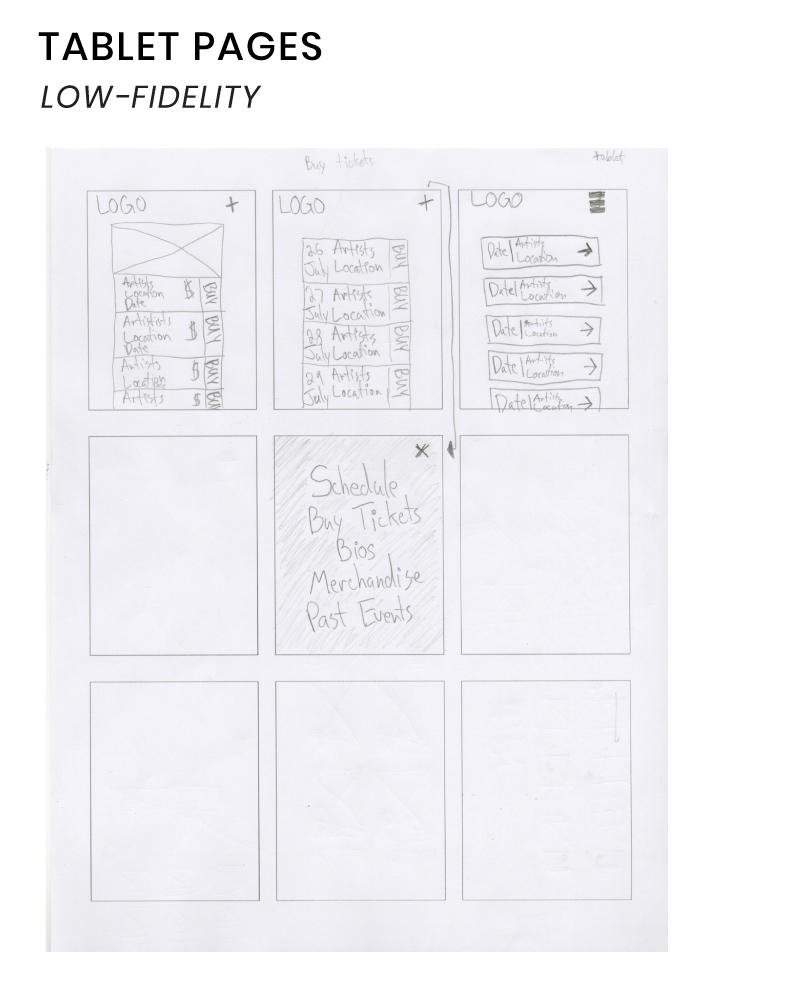 TABLET PAGES
LOW-FIDELITY
Buy tickets
tablet
LOGO +
Artists
Location
Date
$
BUY
Artitists
Location
Date
$
BUY
Artists
Location
$
BUY
Artists
$
BUY
LOGO +
26 Artists
July Location
BUY
27 Artists
July Location
BUY
28 Artists
July Location
BUY
29 Artists
July Location
BUY
LOGO
Date| Artists
Location →
Date| Artists
Location →
Date| Artists
Location →
Date| Artists
Location →
Date| Artists
Location →
X
Schedule
Buy Tickets
Bios
Merchandise
Past Events